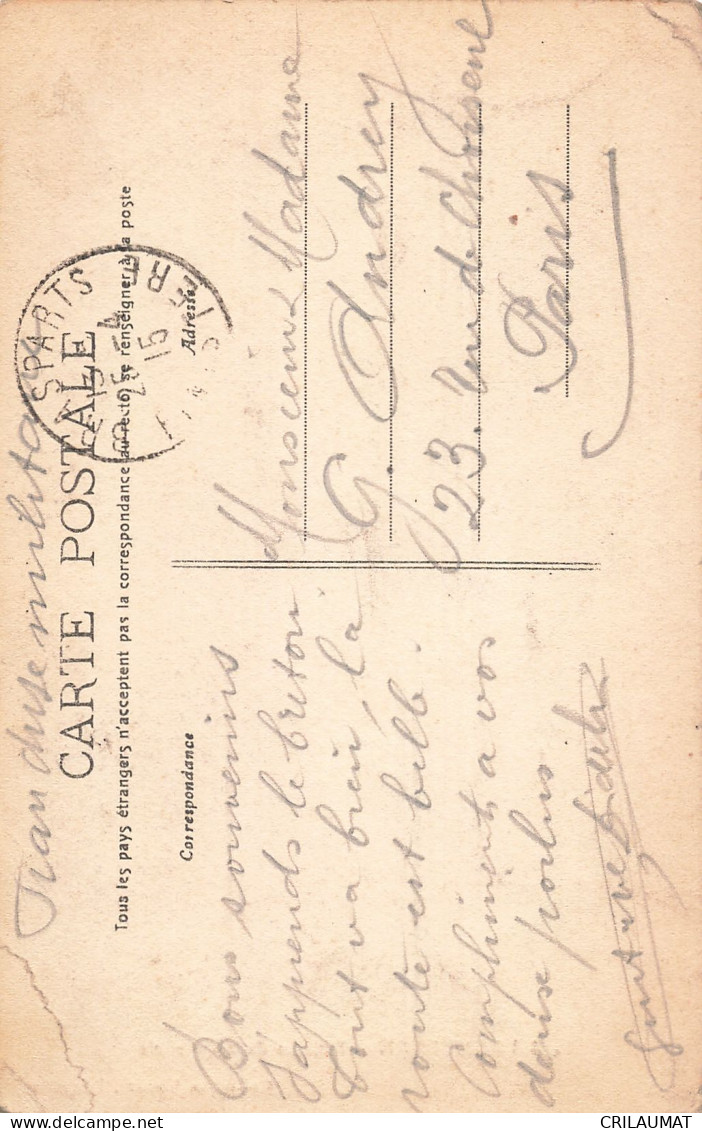 Franchise militaire
CARTE POSTALE
Tous les pays étrangers n'acceptent pas la correspondance au recto, se renseigner à la poste
Correspondance
Adresse
SPARTS
25 -4
15
Bons souvenirs
J'apprends le breton
tout va bien, la
route est belle.
Compliments a vos
deux poilus
Gustave
Madame
G. Andrey
23. Rue de Choiseul
Paris
CRILAUMAT